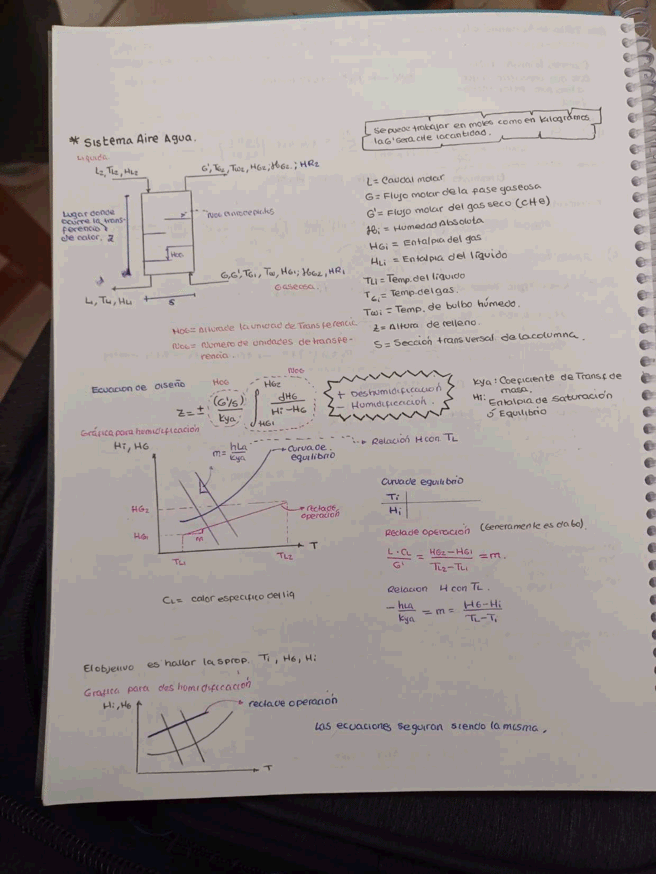 * Sistema Aire Agua.
Se puede trabajar en moles como en kilogramos
la G' será de la cantidad.
Líquida
L2, TL2, HL2
G', TG2, TW2, HG2, ℋG2; HR2
Lugar donde
ocurre la trans-
ferencia
de calor. Z
NOG
HOG
G, G', TG1, TW, HG1; ℋG2, HR1
Gaseosa.
L1, TL1, HL1
S
L = Caudal molar
G = Flujo molar de la fase gaseosa
G' = Flujo molar del gas seco (cte)
ℋi = Humedad Absoluta
HGi = Entalpia del gas
HLi = Entalpia del líquido
TLi = Temp. del líquido
TGi = Temp del gas.
Twi = Temp. de bulbo húmedo.
Z = Altura de relleno.
S = Sección transversal de la columna.
HOG = Altura de la unidad de Transferencia
NOG = Número de unidades de transfe-
rencia.
Ecuación de diseño
HOG
NOG
Z = ± (G'/S) / kya ∫ HG1 HG2 dHG / Hi - HG
+ Deshumidificación
- Humidificación.
kya: Coeficiente de Transf. de
masa.
Hi: Entalpia de saturación
ó Equilibrio
Gráfica para humidificación
Hi, HG
m = hLa / kya
Curva de
equilibrio
Relación H con TL
HG2
HG1
m
recta de
operación
TL1
TL2
T
Curva de equilibrio
Ti
Hi
Recta de operación (Generamente es dato).
L·CL / G' = HG2 - HG1 / TL2 - TL1 = m.
Relacion H con TL.
- hLa / kya = m = HG - Hi / TL - Ti
CL = calor especifico del liq
El objetivo es hallar las prop. Ti, HG, Hi
Gráfica para deshumidificación
Hi, HG
recta de operación
T
Las ecuaciones seguiran siendo la misma.